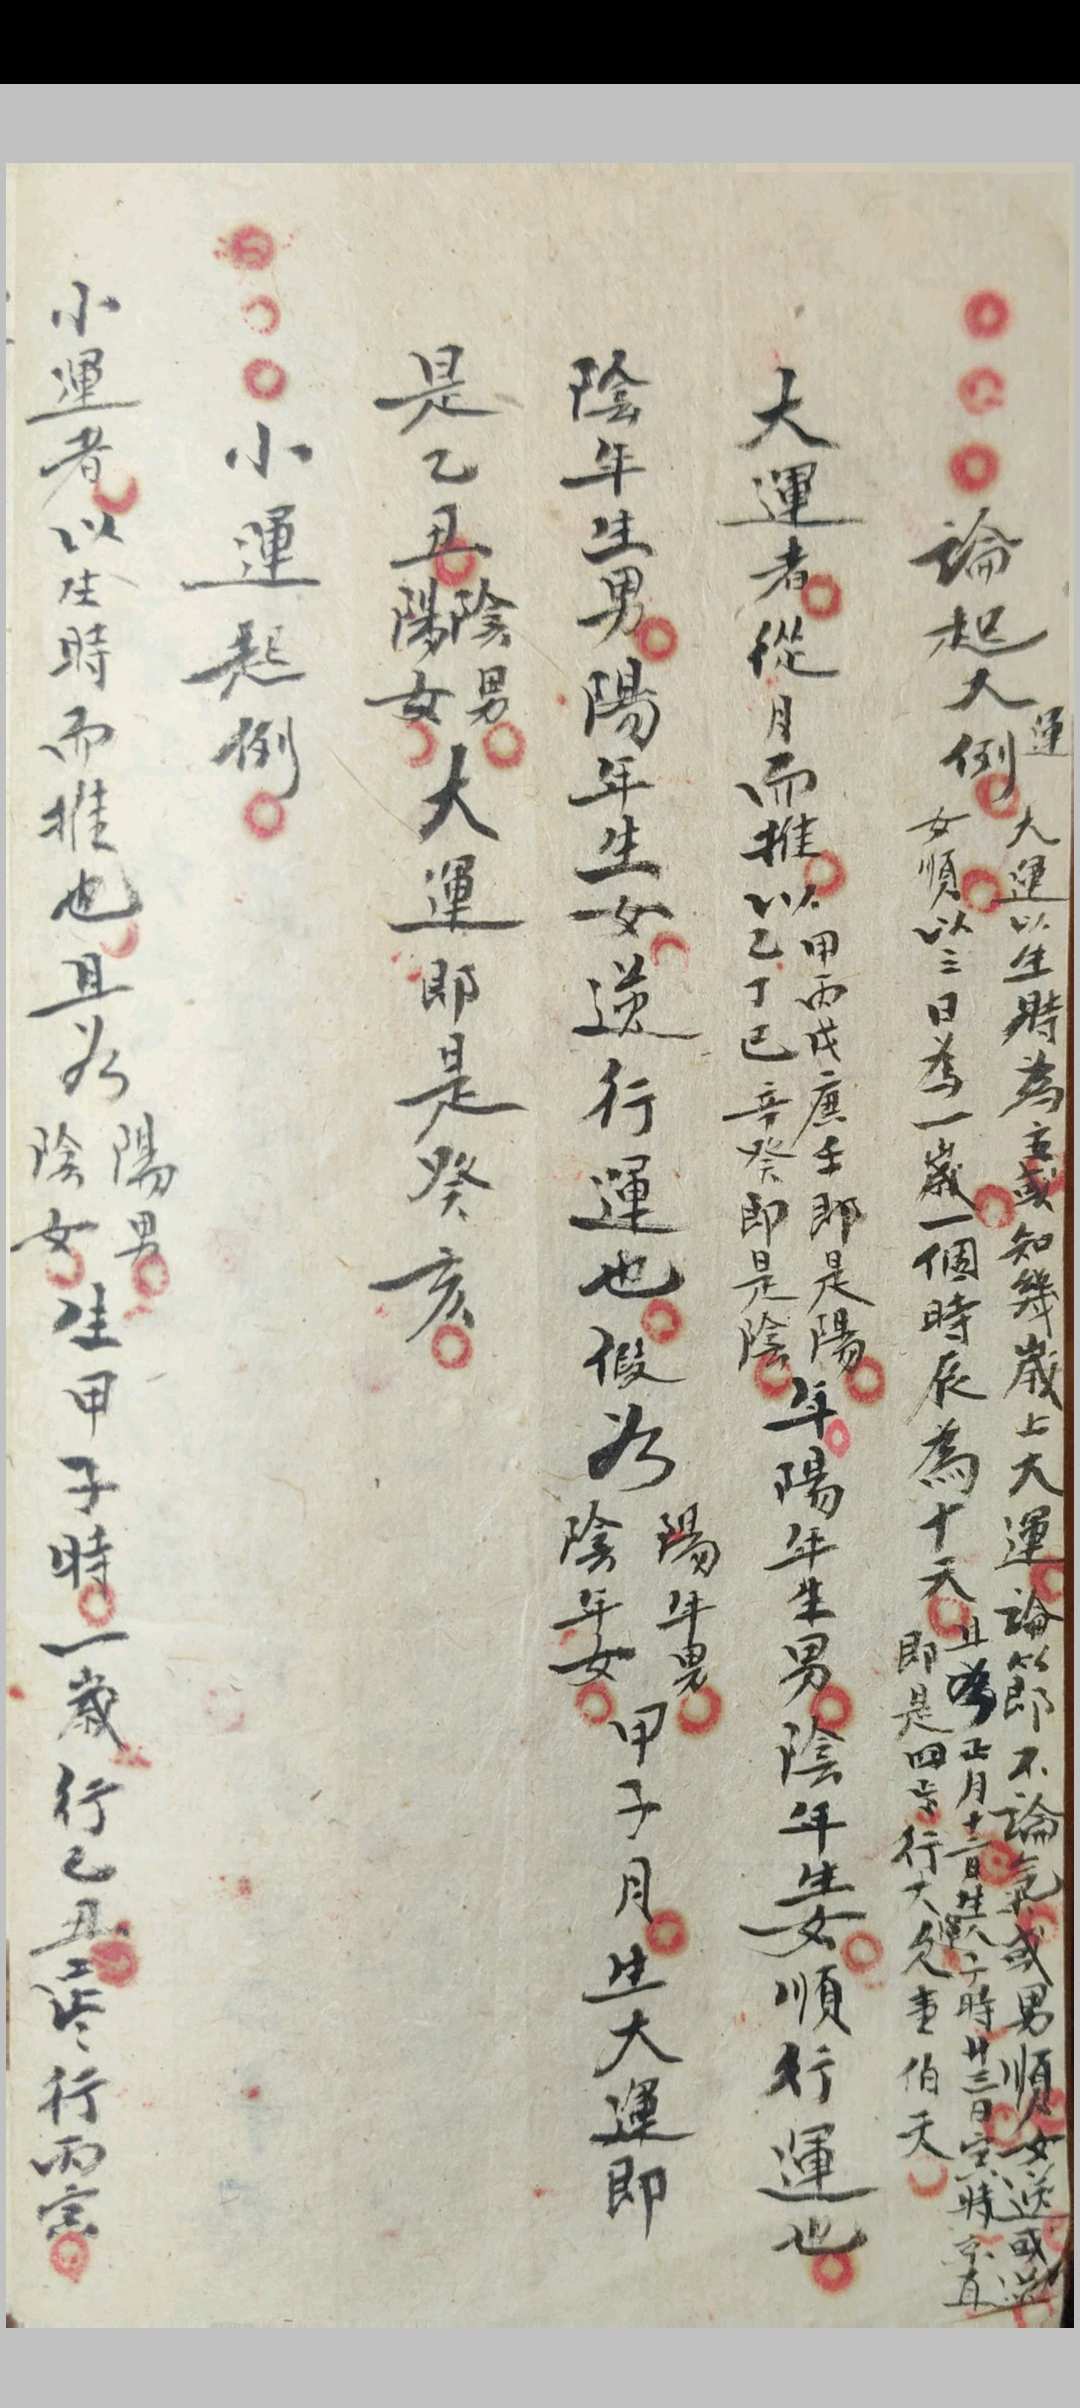 論起大運例
大運以生時為主或知幾歲上大運論節不論氣或男順女逆或逆
女順以三日為一歲一個時辰為十天
且若正月十二日生人子時廿三日寅時
即是四歲行大運欠壹伯天
大運者從月而推
以甲丙戊庚壬即是陽
以乙丁己辛癸即是陰
年陽年生男陰年生女順行運也
陰年生男陽年生女逆行運也假若
陽年男
陰年女
甲子月生大運即
是乙丑
陰男
陽女
大運即是癸亥
小運起例
小運者以生時而推也且若
陽男
陰女
生甲子時一歲行乙丑二歲行丙寅